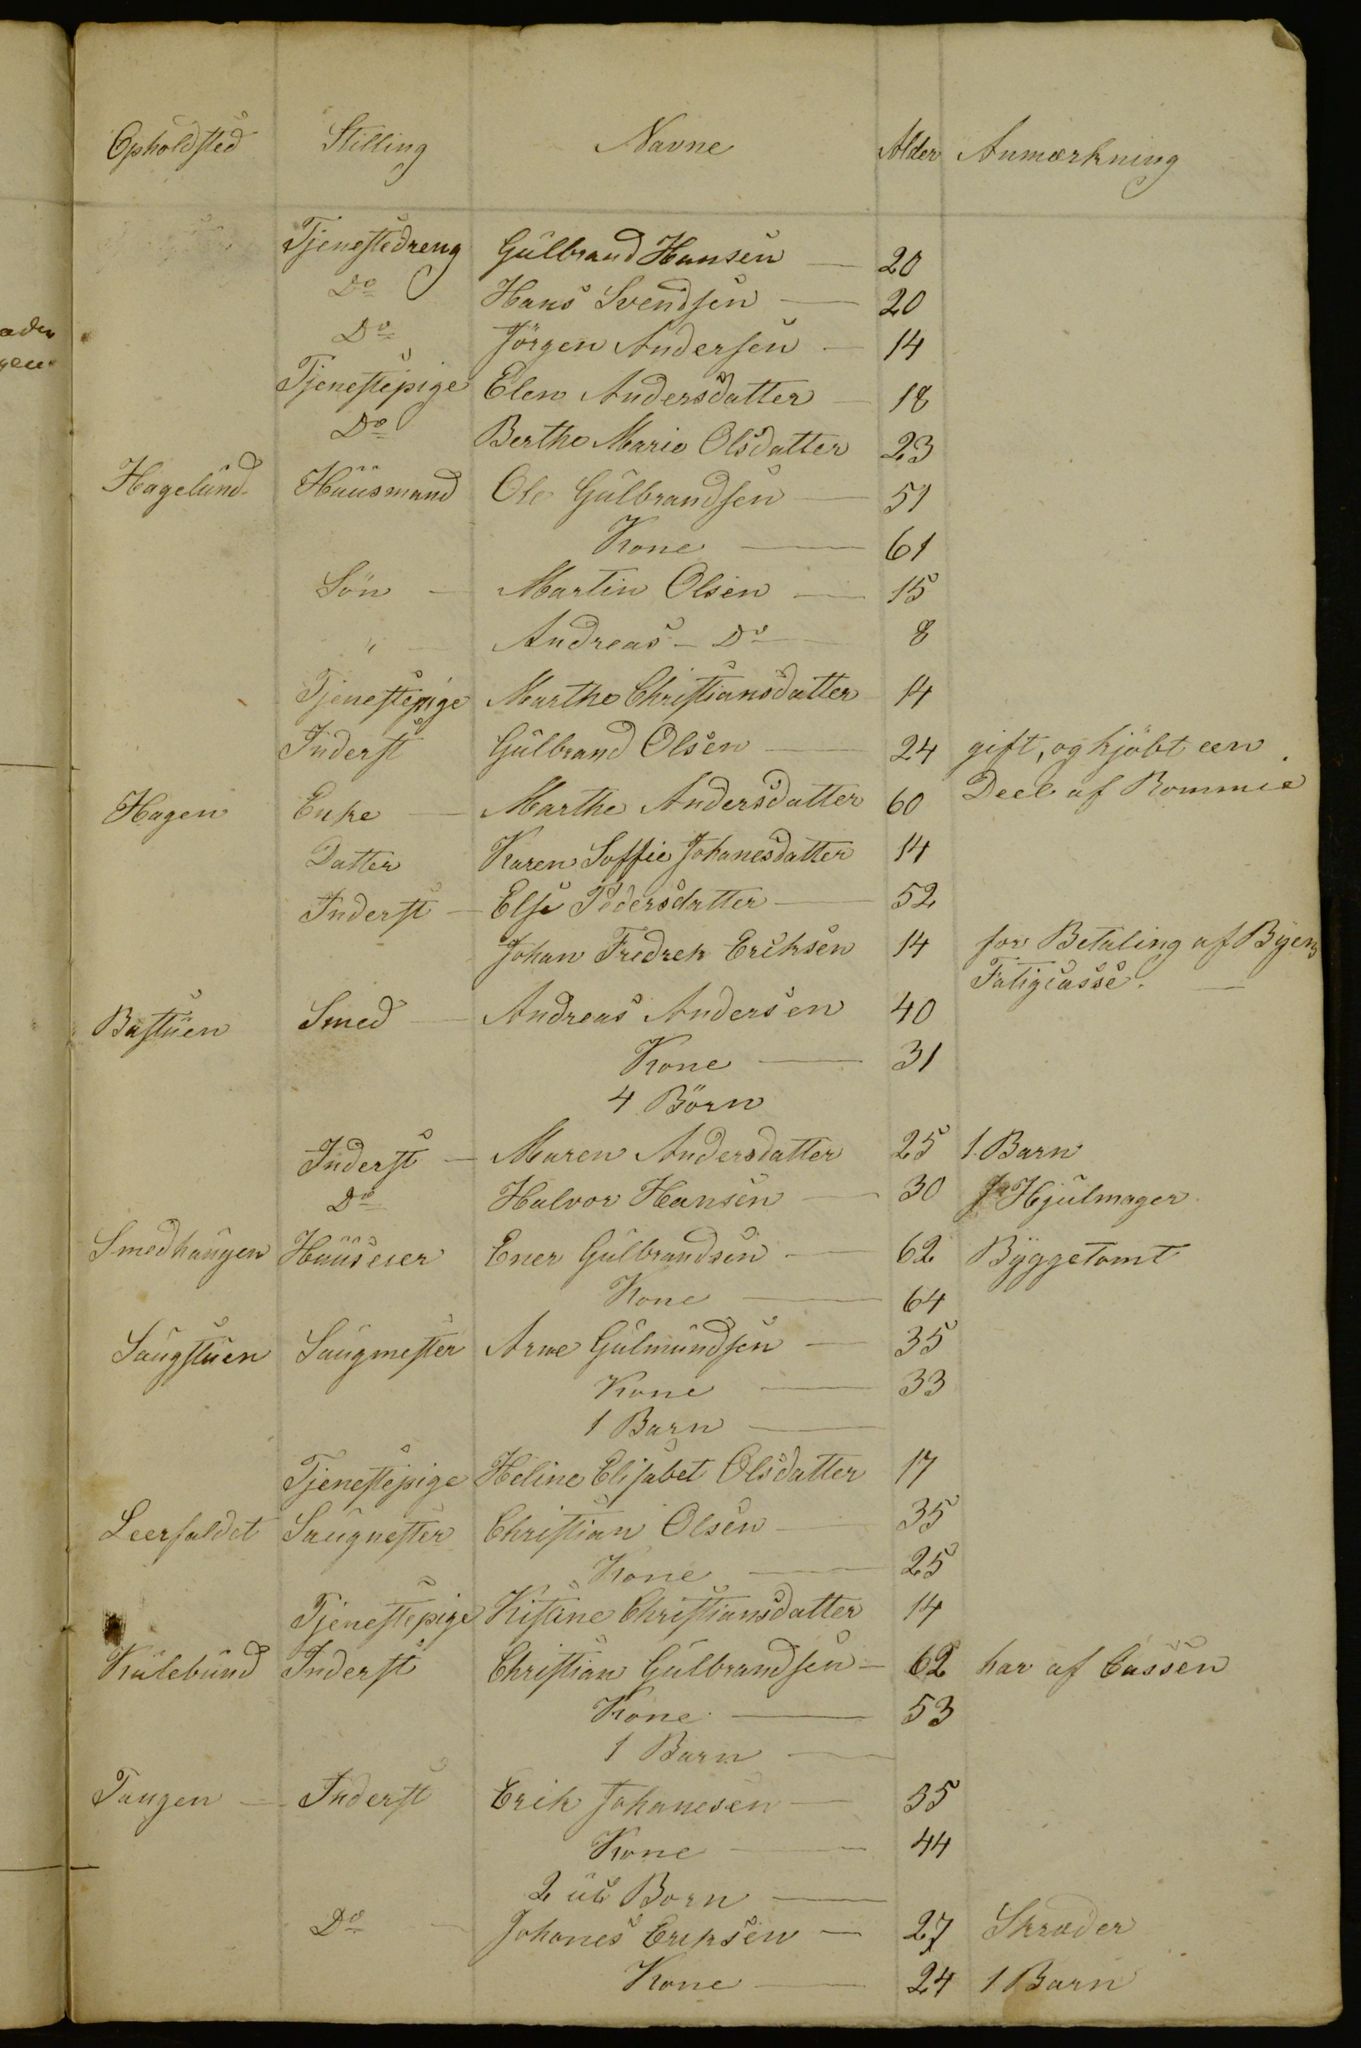 Opholdsted Stilling Navne Alder Anmærkning
Tjenestedreng Gulbrand Hansen — 20
Do Hans Svendsen — 20
Do Jörgen Andersen — 14
Tjenestepige Elen Andersdatter — 18
Do Berthe Marie Olsdatter 23
Hagelund Huusmand Ole Gulbrandsen — 51
Kone — 61
Sön — Martin Olsen — 15
" — Andreas — Do — 8
Tjenestepige Marthe Christiansdatter 14
Inderst Gulbrand Olsen — 24 gift, og kjöbt een
Deel af Rommie
Hagen Enke — Marthe Andersdatter 60
Datter Karen Soffie Johanesdatter 14
Inderst — Else Pedersdatter — 52
Johan Fredrek Eriksen 14 for Betaling af Byens
Fatigcasse. —
Bastuen Smed — Andreas Andersen 40
Kone — 31
4 Börn
Inderst — Maren Andersdatter 25 1 Barn
Do Halvor Hansen — 30 Hjulmager
Smedhaugen Huuseier Ener Gulbrandsen — 62 Byggetomt
Kone — 64
Saugstuen Saugmester Arne Gulmundsen — 35
Kone — 33
1 Barn —
Tjenestepige Heline Elisabet Olsdatter 17
Leerfaldet Saugmester Christian Olsen — 35
Kone — 25
Tjenestepige Kistine Christiansdatter 14
Kulebund Inderst Christian Gulbrandsen — 62 har af Cassen
Kone — 53
1 Barn —
Tangen — Inderst Erik Johanesen — 55
Kone — 44
2 Born —
Do — Johanes Eriksen — 27 Skræder
Kone — 24 1 Barn